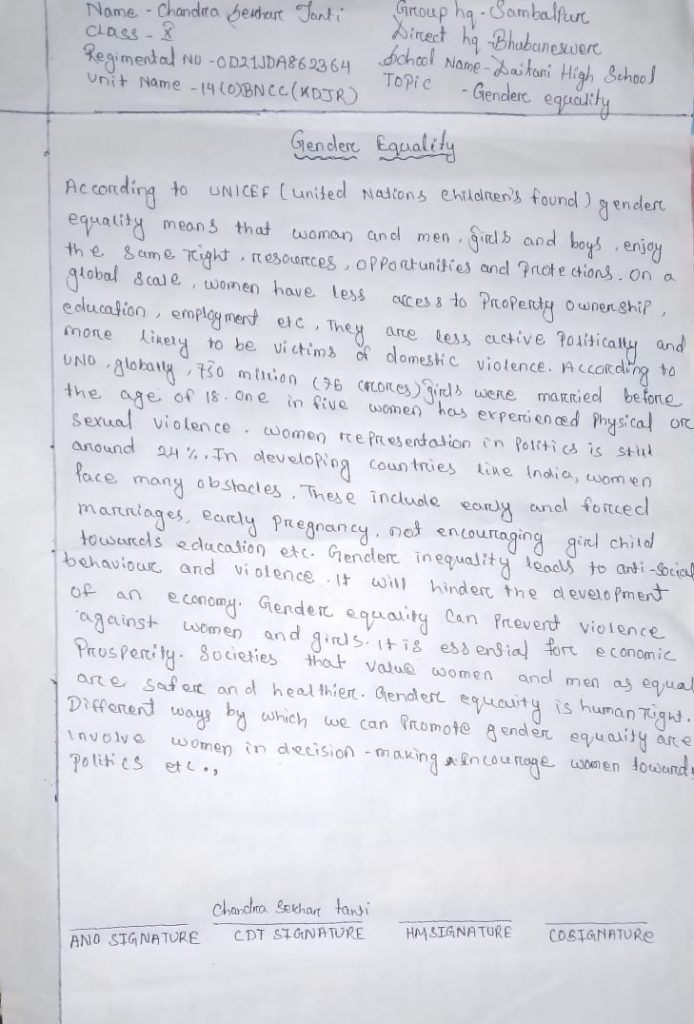 Name - Chandra Sekhare Tanti
Class - X
Regimental No - OD21JDA862364
Unit Name - 14(O)BNCC(KDJR)
Group hq - Sambalpure
Direct hq - Bhubaneswere
School Name - Daitari High School
Topic - Gendere equality
Gendere Equality
According to UNICEF (united Nations children's found) gendere
equality means that woman and men, girls and boys, enjoy
the same right, resources, opportunities and protections. On a
global scale, women have less access to Property ownership,
education, employment etc, They are less active Politically and
more likely to be victims of domestic violence. According to
UNO, globally, 750 million (75 crores) girls were married before
the age of 18. One in five women has experienced Physical or
Sexual violence. women representation in Politics is still
around 24%. In developing countries like India, women
face many obstacles. These include early and forced
marriages, early Pregnancy, not encouraging girl child
towards education etc. Gendere inequality leads to anti-social
behaviour and violence. It will hinder the development
of an economy. Gender equality can Prevent violence
against women and girls. It is essential for economic
Prosperity. Societies that value women and men as equal
are safer and healthier. Gendere equality is human right.
Different ways by which we can Promote gender equality are
involve women in decision-making encourage women toward
Politics etc.,
Chandra Sekhar tanti
ANO SIGNATURE CDT SIGNATURE HMSIGNATURE COSIGNATURE